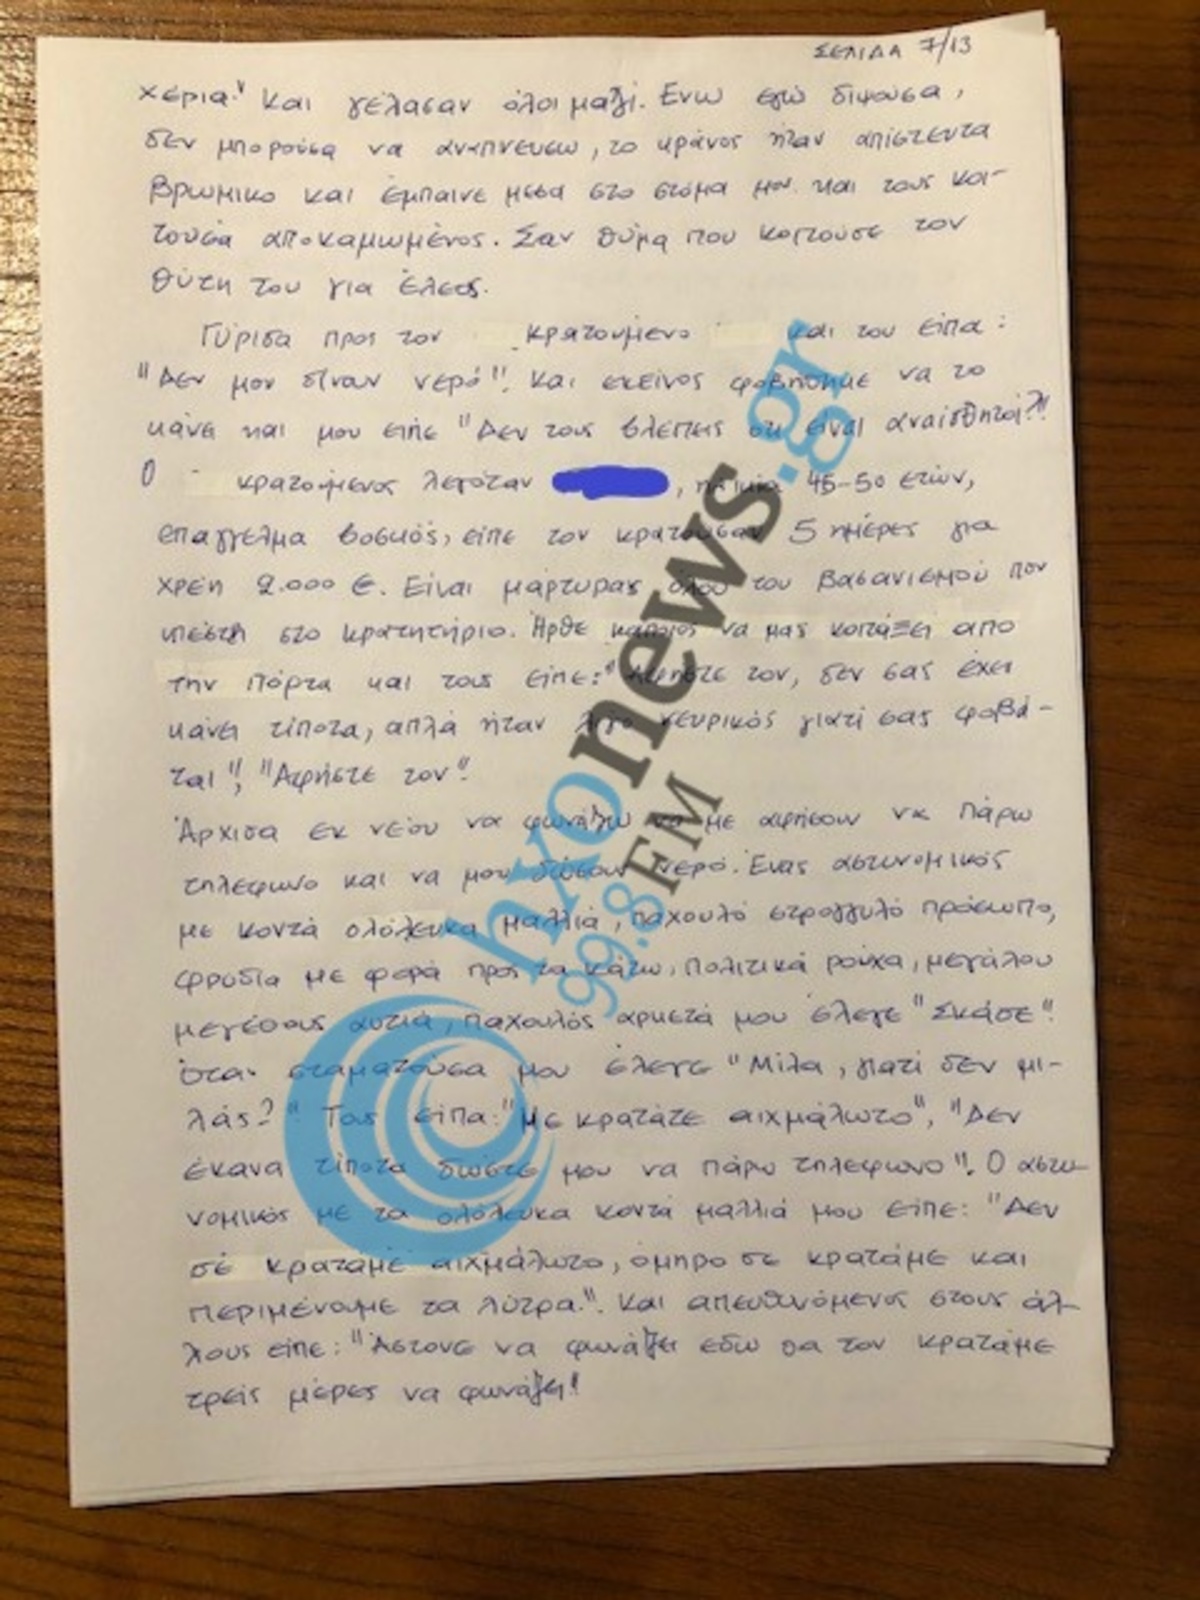 ΣΕΛΙΔΑ 7/13
χέρια." Και γέλασαν όλοι μαζί. Ενώ εγώ διψούσα,
δεν μπορούσα να αναπνεύσω, το κράνος ήταν απίστευτα
βρώμικο και έμπαινε μέσα στο στόμα μου και τους κοι-
τούσα αποκαμωμένος. Σαν θύμα που κοιτούσε τον
θύτη του για έλεος.
Γύρισα προς τον κρατούμενο και του είπα:
"Δεν μου δίνουν νερό". Και εκείνος φοβήθηκε να το
κάνει και μου είπε "Δεν τους βλέπεις ότι είναι αναίσθητοι?"
Ο κρατούμενος λεγόταν , ηλικία 45-50 ετών,
επάγγελμα βοσκός, είπε τον κρατούσαν 5 ημέρες για
χρέη 2.000 €. Είναι μάρτυρας όλου του βασανισμού που
υπέστη στο κρατητήριο. Ήρθε κάποιος να μας κοιτάξει από
την πόρτα και τους είπε: "Αφήστε τον, δεν σας έχει
κάνει τίποτα, απλά ήταν λίγο νευρικός γιατί σας φοβά-
ται", "Αφήστε τον".
Άρχισα εκ νέου να φωνάζω να με αφήσουν να πάρω
τηλέφωνο και να μου δώσουν νερό. Ένας αστυνομικός
με κοντά ολόλευκα μαλλιά, παχουλό στρογγυλό πρόσωπο,
φρύδια με φορά προς τα κάτω, πολιτικά ρούχα, μεγάλου
μεγέθους αυτιά, παχουλός αρκετά μου έλεγε "Σκάσε".
Όταν σταματούσα μου έλεγε "Μίλα, γιατί δεν μι-
λάς?" Τους είπα: "Με κρατάτε αιχμάλωτο", "Δεν
έκανα τίποτα δώστε μου να πάρω τηλέφωνο". Ο αστυ-
νομικός με τα ολόλευκα κοντά μαλλιά μου είπε: "Δεν
σε κρατάμε αιχμάλωτο, όμηρο σε κρατάμε και
περιμένουμε τα λύτρα." Και απευθυνόμενος στους άλ-
λους είπε: "Άστονε να φωνάζει εδώ θα τον κρατάμε
τρεις μέρες να φωνάζει!
hxonews.gr
99.8FM